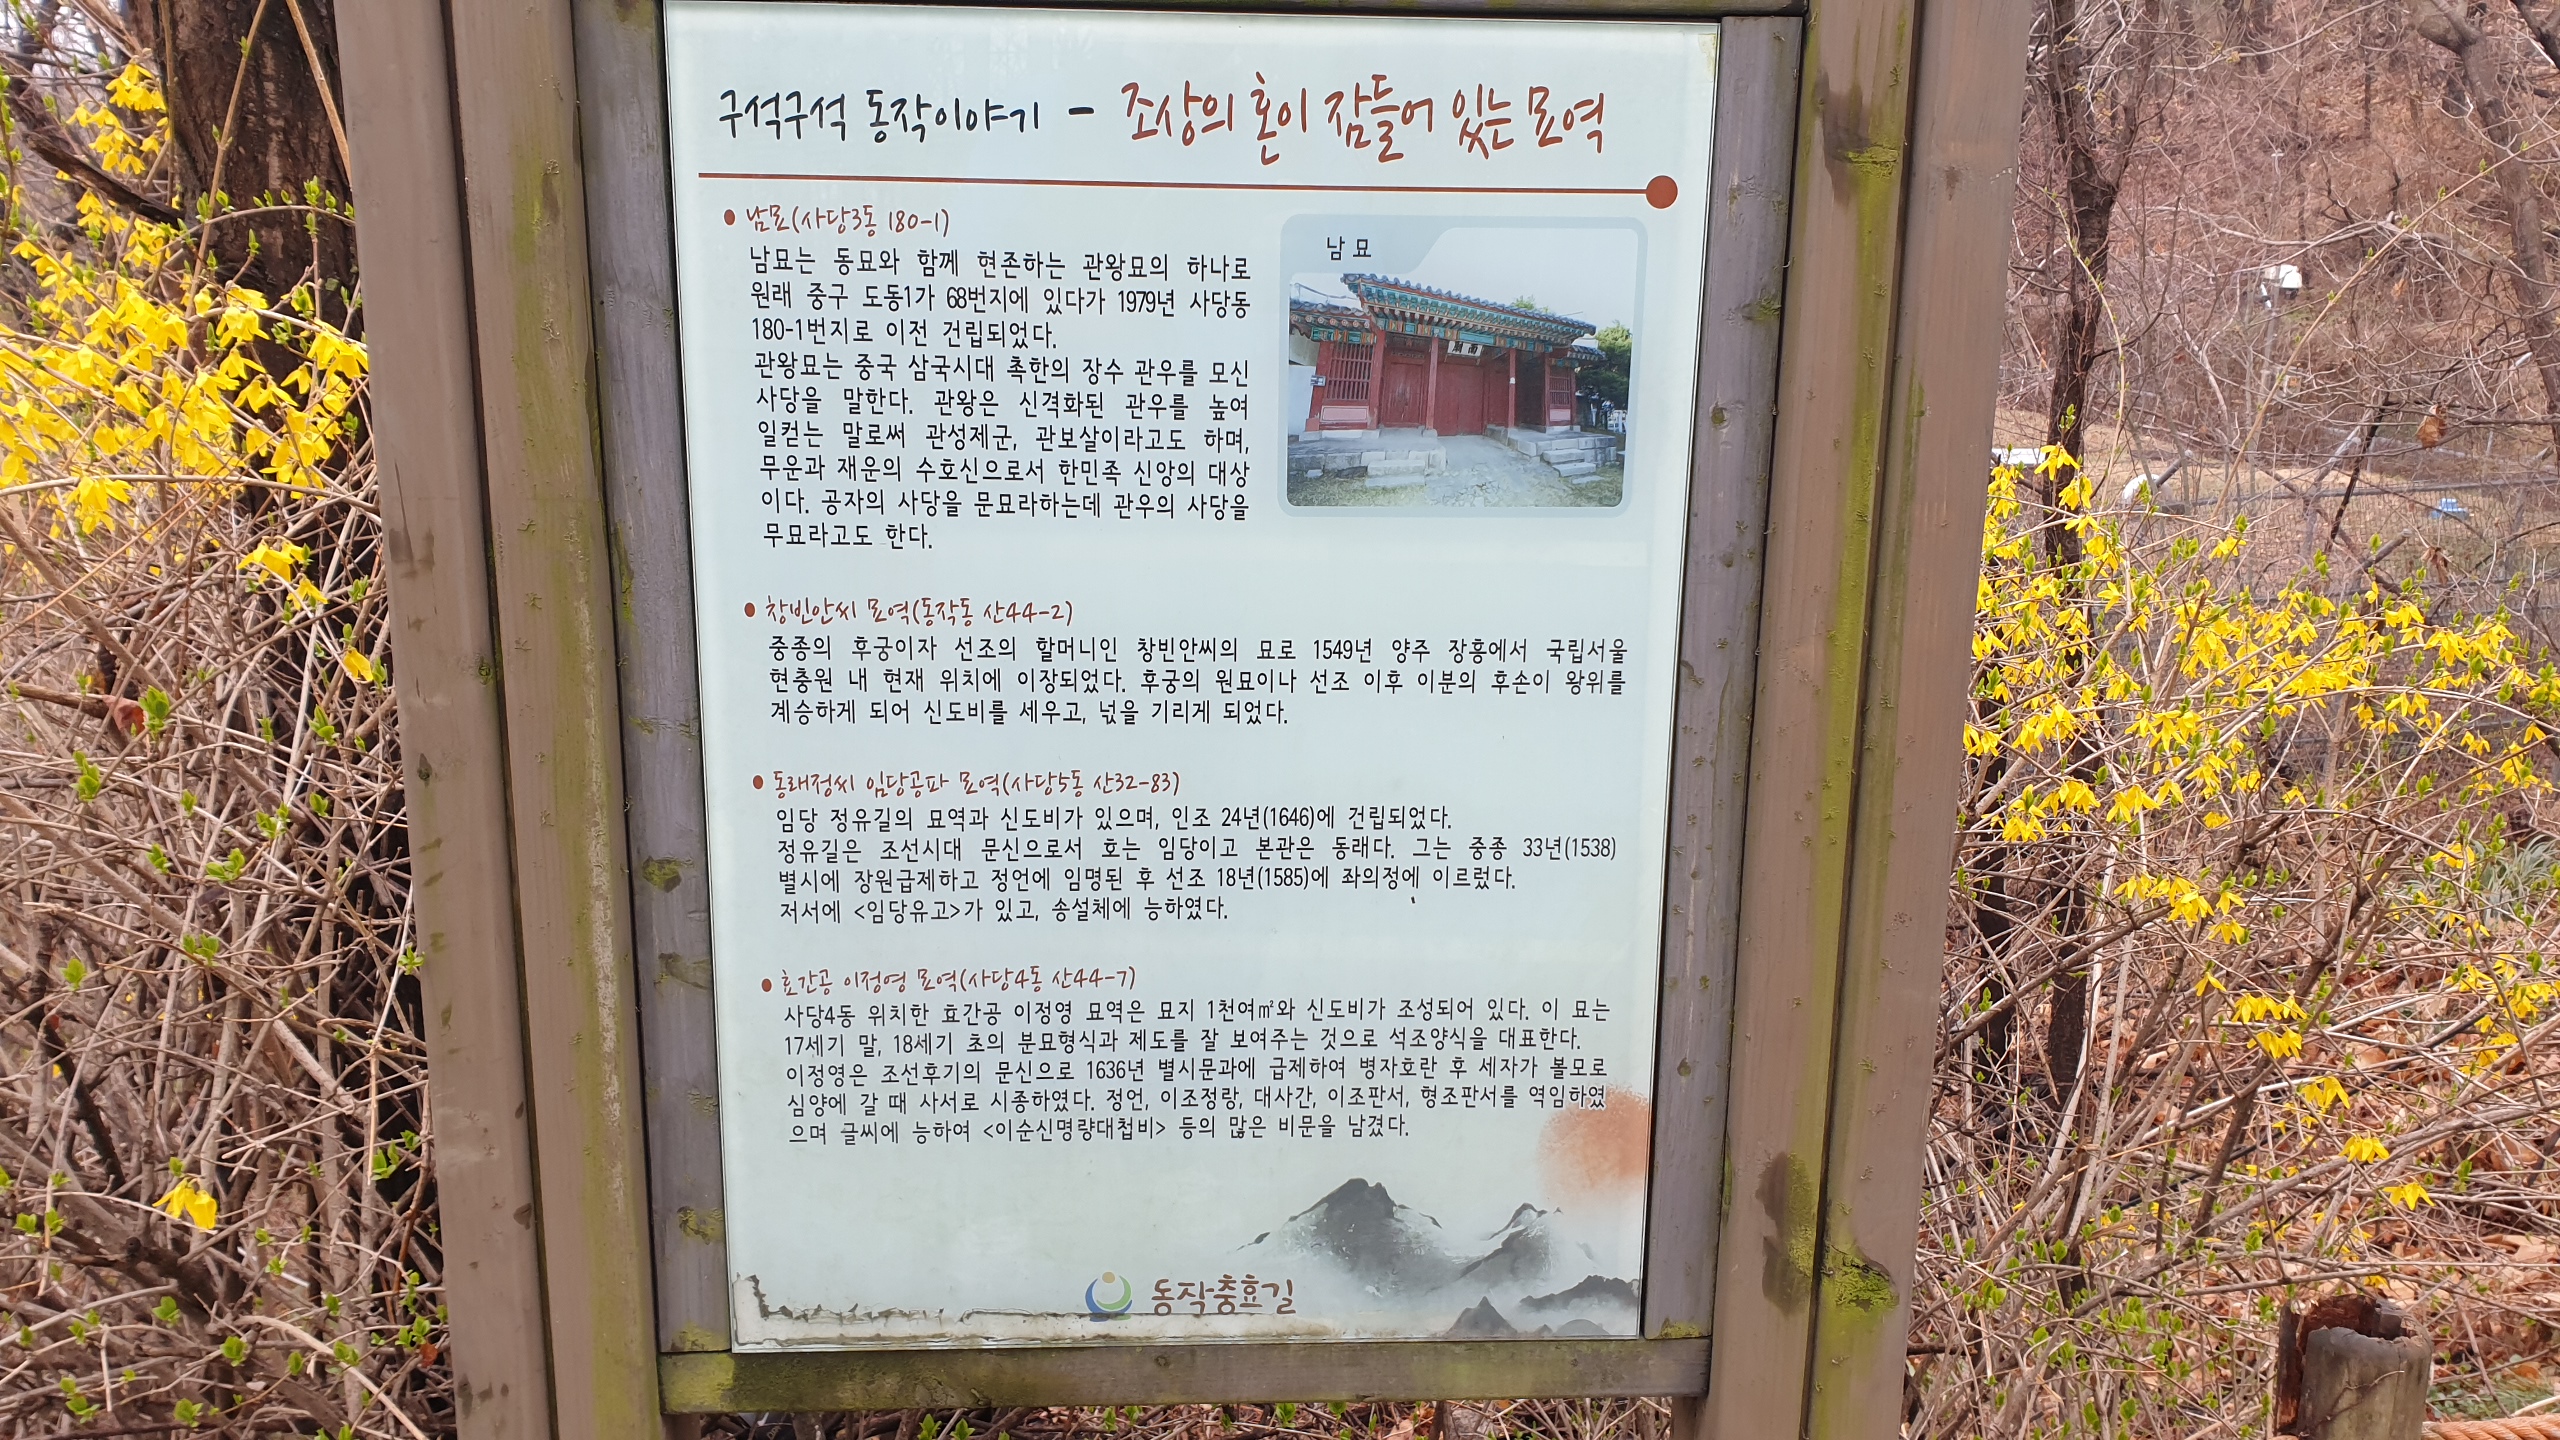 구석구석 동작이야기 - 조상의 혼이 잠들어 있는 묘역
• 남묘(사당3동 180-1)
남묘는 동묘와 함께 현존하는 관왕묘의 하나로
원래 중구 도동1가 68번지에 있다가 1979년 사당동
180-1번지로 이전 건립되었다.
관왕묘는 중국 삼국시대 촉한의 장수 관우를 모신
사당을 말한다. 관왕은 신격화된 관우를 높여
일컫는 말로써 관성제군, 관보살이라고도 하며,
무운과 재운의 수호신으로서 한민족 신앙의 대상
이다. 공자의 사당을 문묘라하는데 관우의 사당을
무묘라고도 한다.
남묘
• 창빈안씨 묘역(동작동 산44-2)
중종의 후궁이자 선조의 할머니인 창빈안씨의 묘로 1549년 양주 장흥에서 국립서울
현충원 내 현재 위치에 이장되었다. 후궁의 원묘이나 선조 이후 이분의 후손이 왕위를
계승하게 되어 신도비를 세우고, 넋을 기리게 되었다.
• 동래정씨 임당공파 묘역(사당5동 산32-83)
임당 정유길의 묘역과 신도비가 있으며, 인조 24년(1646)에 건립되었다.
정유길은 조선시대 문신으로서 호는 임당이고 본관은 동래다. 그는 중종 33년(1538)
별시에 장원급제하고 정언에 임명된 후 선조 18년(1585)에 좌의정에 이르렀다.
저서에 <임당유고>가 있고, 송설체에 능하였다.
• 효간공 이정영 묘역(사당4동 산44-7)
사당4동 위치한 효간공 이정영 묘역은 묘지 1천여㎡와 신도비가 조성되어 있다. 이 묘는
17세기 말, 18세기 초의 분묘형식과 제도를 잘 보여주는 것으로 석조양식을 대표한다.
이정영은 조선후기의 문신으로 1636년 별시문과에 급제하여 병자호란 후 세자가 볼모로
심양에 갈 때 사서로 시종하였다. 정언, 이조정랑, 대사간, 이조판서, 형조판서를 역임하였
으며 글씨에 능하여 <이순신명량대첩비> 등의 많은 비문을 남겼다.
동작충효길